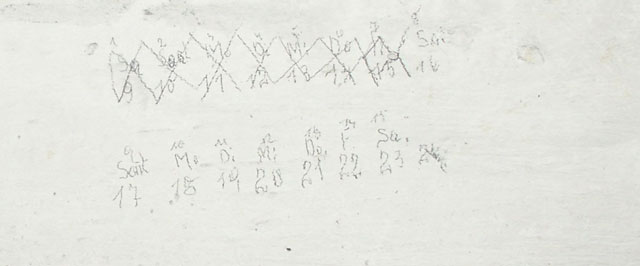 1 2 3 4 5 6 7 8
Mi Do Sa.
9 10 11 12 13 14 15 16
9 10 11 12 13 14 15
M. Di Mi Do. F. Sa.
17 18 19 20 21 22 23